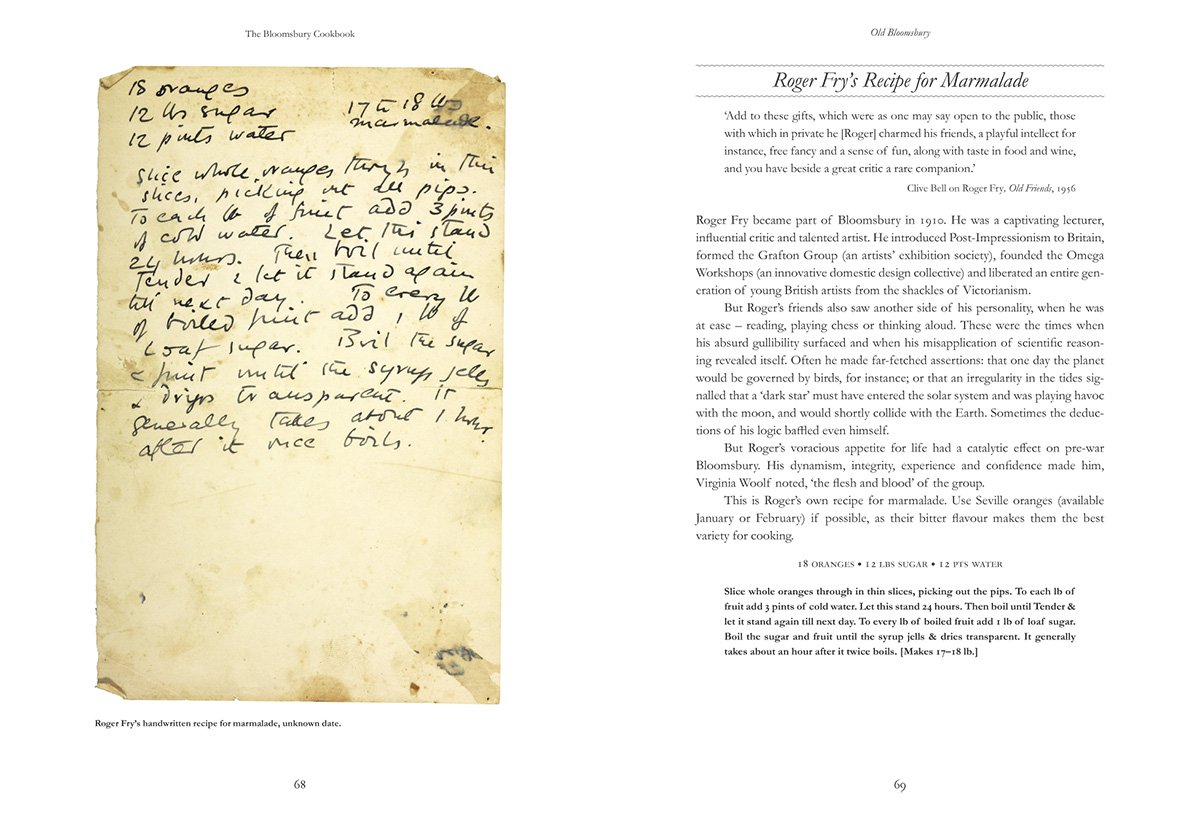 The Bloomsbury Cookbook
18 oranges
12 lbs sugar
17 to 18 lbs
marmalade.
12 pints water
Slice whole oranges through in thin
slices, picking out all pips.
To each lb of fruit add 3 pints
of cold water. Let this stand
24 hours. Then boil until
Tender & let it stand again
till next day. To every lb
of boiled fruit add 1 lb of
Loaf sugar. Boil the sugar
& fruit until the syrup jells
& drips transparent. It
generally takes about 1 hour
after it once boils.
Roger Fry's handwritten recipe for marmalade, unknown date.
68
Old Bloomsbury
Roger Fry's Recipe for Marmalade
'Add to these gifts, which were as one may say open to the public, those
with which in private he [Roger] charmed his friends, a playful intellect for
instance, free fancy and a sense of fun, along with taste in food and wine,
and you have beside a great critic a rare companion.'
Clive Bell on Roger Fry, Old Friends, 1956
Roger Fry became part of Bloomsbury in 1910. He was a captivating lecturer,
influential critic and talented artist. He introduced Post-Impressionism to Britain,
formed the Grafton Group (an artists' exhibition society), founded the Omega
Workshops (an innovative domestic design collective) and liberated an entire gen-
eration of young British artists from the shackles of Victorianism.
But Roger's friends also saw another side of his personality, when he was
at ease – reading, playing chess or thinking aloud. These were the times when
his absurd gullibility surfaced and when his misapplication of scientific reason-
ing revealed itself. Often he made far-fetched assertions: that one day the planet
would be governed by birds, for instance; or that an irregularity in the tides sig-
nalled that a 'dark star' must have entered the solar system and was playing havoc
with the moon, and would shortly collide with the Earth. Sometimes the deduc-
tions of his logic baffled even himself.
But Roger's voracious appetite for life had a catalytic effect on pre-war
Bloomsbury. His dynamism, integrity, experience and confidence made him,
Virginia Woolf noted, 'the flesh and blood' of the group.
This is Roger's own recipe for marmalade. Use Seville oranges (available
January or February) if possible, as their bitter flavour makes them the best
variety for cooking.
18 ORANGES • 12 LBS SUGAR • 12 PTS WATER
Slice whole oranges through in thin slices, picking out the pips. To each lb of
fruit add 3 pints of cold water. Let this stand 24 hours. Then boil until Tender &
let it stand again till next day. To every lb of boiled fruit add 1 lb of loaf sugar.
Boil the sugar and fruit until the syrup jells & dries transparent. It generally
takes about an hour after it twice boils. [Makes 17–18 lb.]
69